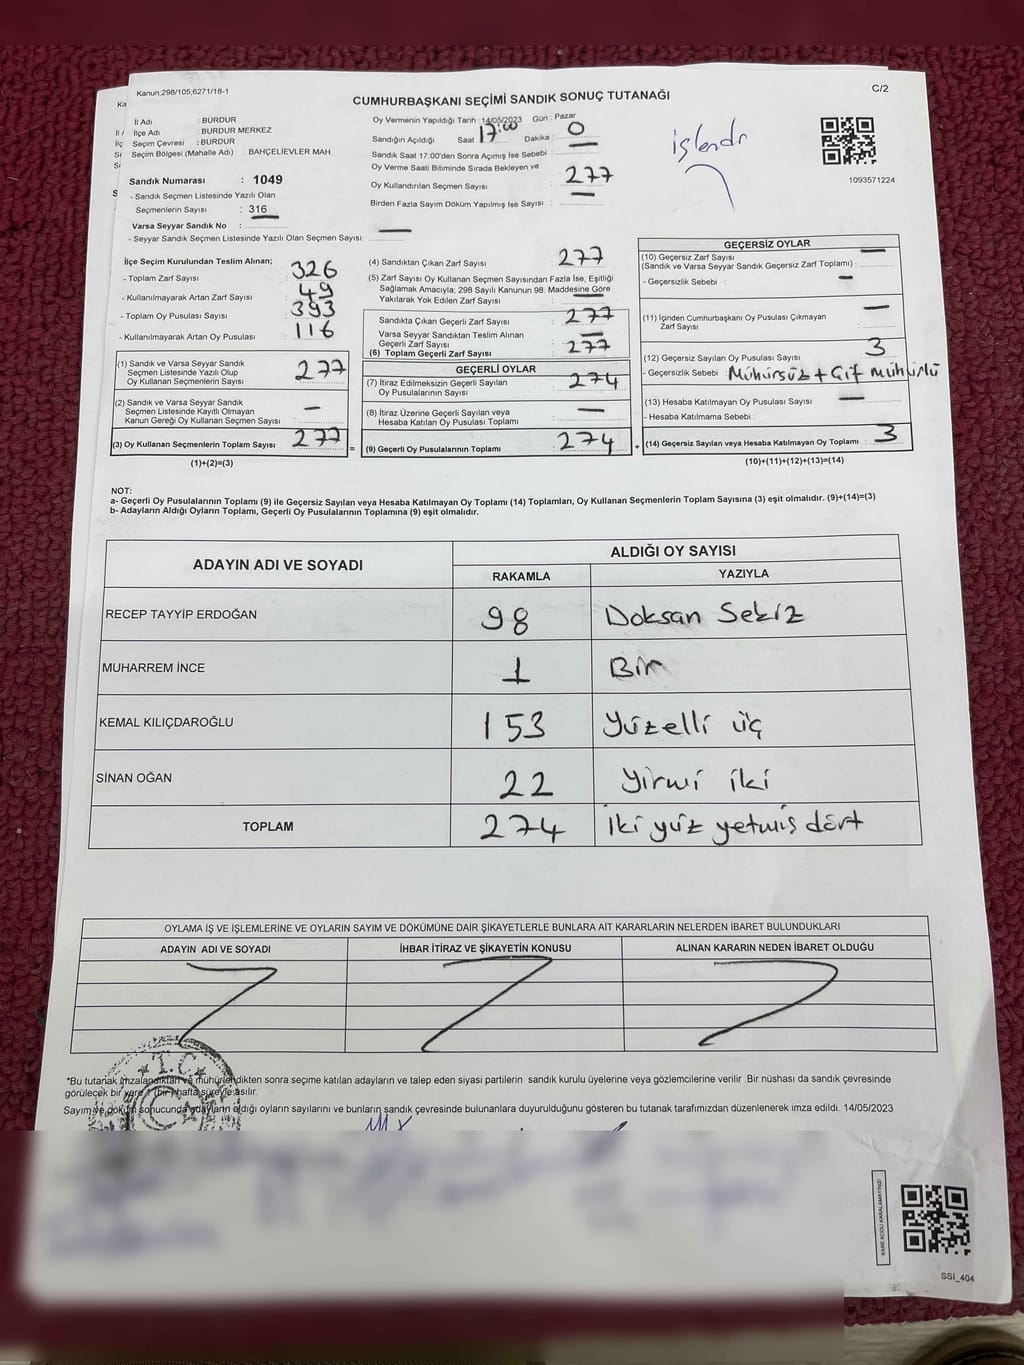 Kanun;298/105;6271/18-1
C/2
CUMHURBAŞKANI SEÇİMİ SANDIK SONUÇ TUTANAĞI
İl Adı : BURDUR
İlçe Adı : BURDUR MERKEZ
Seçim Çevresi : BURDUR
Seçim Bölgesi (Mahalle Adı) : BAHÇELİEVLER MAH.
Sandık Numarası : 1049
- Sandık Seçmen Listesinde Yazılı Olan
Seçmenlerin Sayısı : 316
Varsa Seyyar Sandık No :
- Seyyar Sandık Seçmen Listesinde Yazılı Olan Seçmen Sayısı: —
Oy Vermenin Yapıldığı Tarih :14/05/2023 Gün : Pazar
Sandığın Açıldığı Saat 17:00 Dakika : 0
Sandık Saat 17:00'den Sonra Açımış İse Sebebi : —
Oy Verme Saati Bitiminde Sırada Bekleyen ve
Oy Kullandırılan Seçmen Sayısı : 277
Birden Fazla Sayım Döküm Yapılmış İse Sayısı : —
işlendi
1093571224
İlçe Seçim Kurulundan Teslim Alınan;
- Toplam Zarf Sayısı 326
- Kullanılmayarak Artan Zarf Sayısı : 49
- Toplam Oy Pusulası Sayısı : 393
- Kullanılmayarak Artan Oy Pusulası : 116
(1) Sandık ve Varsa Seyyar Sandık
Seçmen Listesinde Yazılı Olup
Oy Kullanan Seçmenlerin Sayısı : 277
(2) Sandık ve Varsa Seyyar Sandık
Seçmen Listesinde Kayıtlı Olmayan
Kanun Gereği Oy Kullanan Seçmen Sayısı : —
(3) Oy Kullanan Seçmenlerin Toplam Sayısı : 277
(1)+(2)=(3)
(4) Sandıktan Çıkan Zarf Sayısı : 277
(5) Zarf Sayısı Oy Kullanan Seçmen Sayısından Fazla İse, Eşitliği
Sağlamak Amacıyla; 298 Sayılı Kanunun 98. Maddesine Göre
Yakılarak Yok Edilen Zarf Sayısı : —
Sandıkta Çıkan Geçerli Zarf Sayısı : 277
Varsa Seyyar Sandıktan Teslim Alınan
Geçerli Zarf Sayısı : —
(6) Toplam Geçerli Zarf Sayısı : 277
GEÇERLİ OYLAR
(7) İtiraz Edilmeksizin Geçerli Sayılan
Oy Pusulalarının Sayısı : 274
(8) İtiraz Üzerine Geçerli Sayılan veya
Hesaba Katılan Oy Pusulası Toplamı : —
= (9) Geçerli Oy Pusulalarının Toplamı : 274
GEÇERSİZ OYLAR
(10) Geçersiz Zarf Sayısı
(Sandık ve Varsa Seyyar Sandık Geçersiz Zarf Toplamı) : —
- Geçersizlik Sebebi : —
(11) İçinden Cumhurbaşkanı Oy Pusulası Çıkmayan
Zarf Sayısı : —
(12) Geçersiz Sayılan Oy Pusulası Sayısı : 3
- Geçersizlik Sebebi : Mühürsüz + Çif mühürlü
(13) Hesaba Katılmayan Oy Pusulası Sayısı : —
- Hesaba Katılmama Sebebi :
+ (14) Geçersiz Sayılan veya Hesaba Katılmayan Oy Toplamı : 3
(10)+(11)+(12)+(13)=(14)
NOT:
a- Geçerli Oy Pusulalarının Toplamı (9) ile Geçersiz Sayılan veya Hesaba Katılmayan Oy Toplamı (14) Toplamları, Oy Kullanan Seçmenlerin Toplam Sayısına (3) eşit olmalıdır. (9)+(14)=(3)
b- Adayların Aldığı Oyların Toplamı, Geçerli Oy Pusulalarının Toplamına (9) eşit olmalıdır.
ADAYIN ADI VE SOYADI ALDIĞI OY SAYISI
RAKAMLA YAZIYLA
RECEP TAYYİP ERDOĞAN 98 Doksan Sekiz
MUHARREM İNCE 1 Bir
KEMAL KILIÇDAROĞLU 153 Yüzelli üç
SİNAN OĞAN 22 Yirmi iki
TOPLAM 274 İki yüz yetmiş dört
OYLAMA İŞ VE İŞLEMLERİNE VE OYLARIN SAYIM VE DÖKÜMÜNE DAİR ŞİKAYETLERLE BUNLARA AİT KARARLARIN NELERDEN İBARET BULUNDUKLARI
ADAYIN ADI VE SOYADI İHBAR İTİRAZ VE ŞİKAYETİN KONUSU ALINAN KARARIN NEDEN İBARET OLDUĞU
T.C.
*Bu tutanak imzalandıktan ve mühürlendikten sonra seçime katılan adayların ve talep eden siyasi partilerin sandık kurulu üyelerine veya gözlemcilerine verilir .Bir nüshası da sandık çevresinde
görülecek bir yere 1 (bir) hafta süreyle asılır.
Sayım ve döküm sonucunda adayların aldığı oyların sayılarını ve bunların sandık çevresinde bulunanlara duyurulduğunu gösteren bu tutanak tarafımızdan düzenlenerek imza edildi. 14/05/2023
KARE KODU KARALAMAYINIZ!
SSI_404